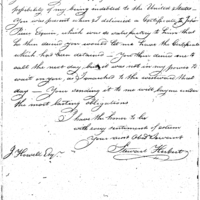 probability of my being indebted to the United States.
You was present when I delivered a Certificate to John
Pierce Esquire, which was so satisfactory to him that
he then said you would let me know the Certificate
which has been detained — You then desired me to
call the next day, but it was not in my power to
wait on you, as I marched to the westward that
day — Your sending it to me will confer under
the most lasting obligations
I have the honor to be
with every sentiment of esteem
Your most Obed Servant
Stewart Herbert
J Howell Esq